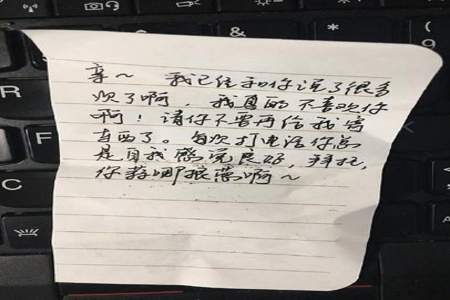 亲～ 我已经和你说了很多
次了啊，我真的不喜欢你
啊！请你不要再给我寄
东西了。每次打电话你总
是自我感觉良好，拜托，
你算哪根葱啊～
R
F
C